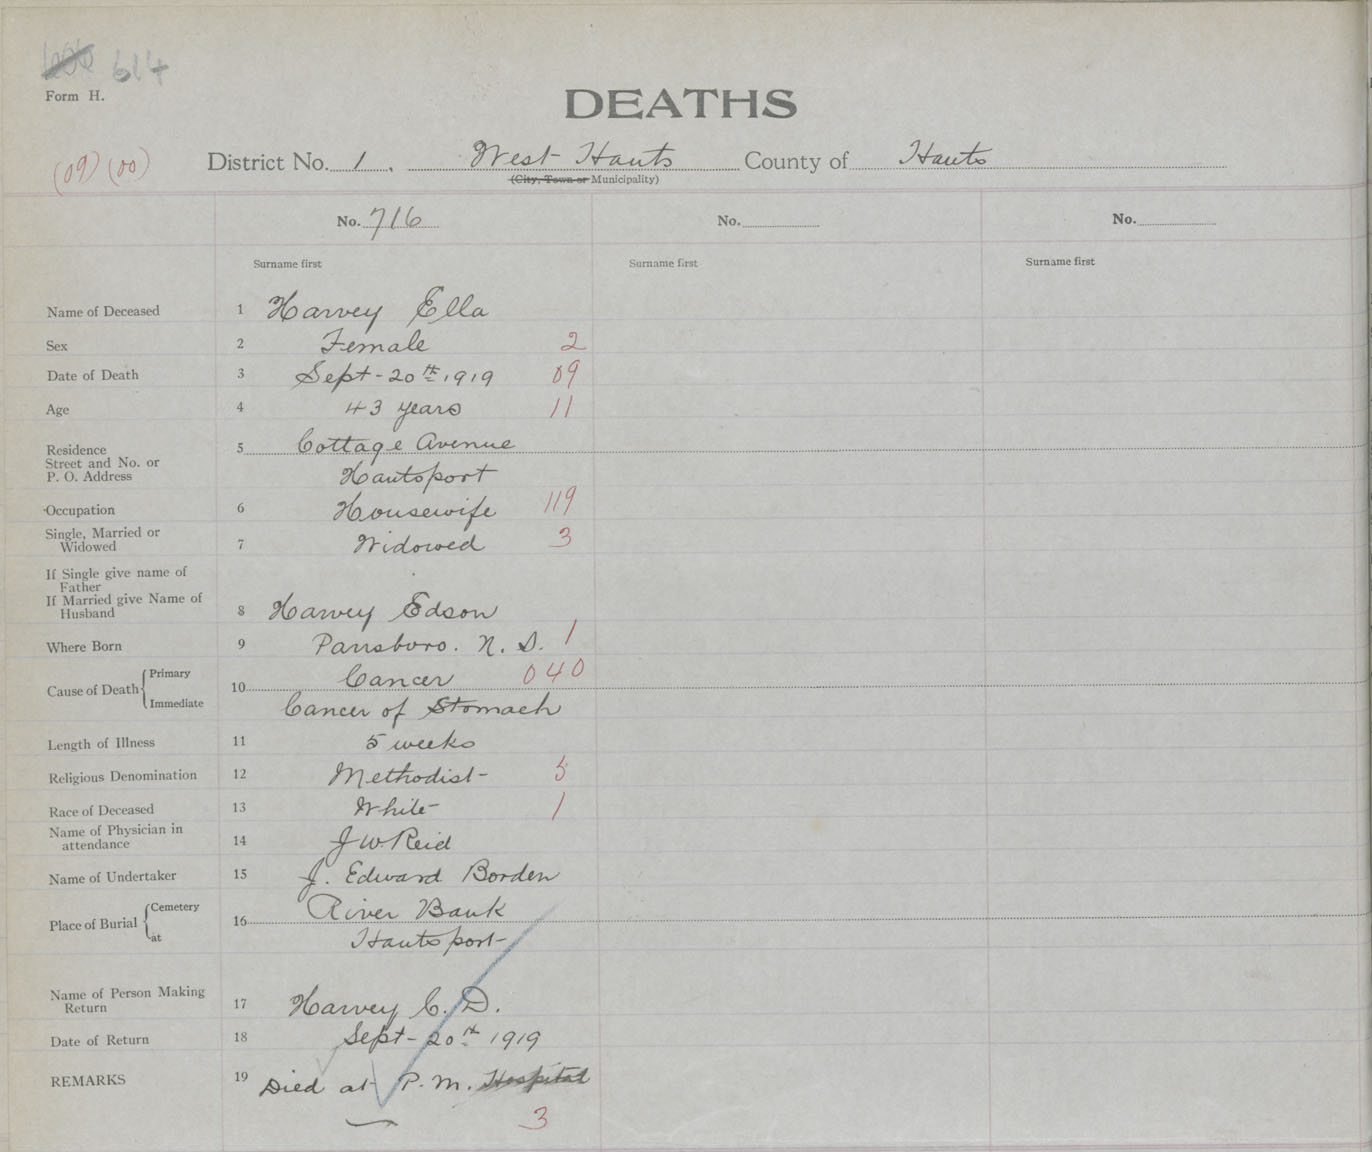 614
Form H.
DEATHS
(09) (00)
District No. 1, West Hants County of Hants
(City, Town or Municipality)
No. 716 No. No.
Surname first Surname first Surname first
Name of Deceased 1 Harvey Ella
Sex 2 Female 2
Date of Death 3 Sept-20th 1919 09
Age 4 43 years 11
Residence 5 Cottage Avenue
Street and No. or
P. O. Address Hantsport
Occupation 6 Housewife 119
Single, Married or
Widowed 7 Widowed 3
If Single give name of
Father
If Married give Name of
Husband 8 Harvey Edson
Where Born 9 Parrsboro. N. S. 1
Cause of Death Primary 10 Cancer 040
Immediate Cancer of Stomach
Length of Illness 11 5 weeks
Religious Denomination 12 Methodist- 5
Race of Deceased 13 White- 1
Name of Physician in
attendance 14 J W. Reid
Name of Undertaker 15 J. Edward Borden
Place of Burial Cemetery 16 River Bank
at Hantsport-
Name of Person Making
Return 17 Harvey C. D.
Date of Return 18 Sept-20th 1919
REMARKS 19 Died at P. M. Hospital
3